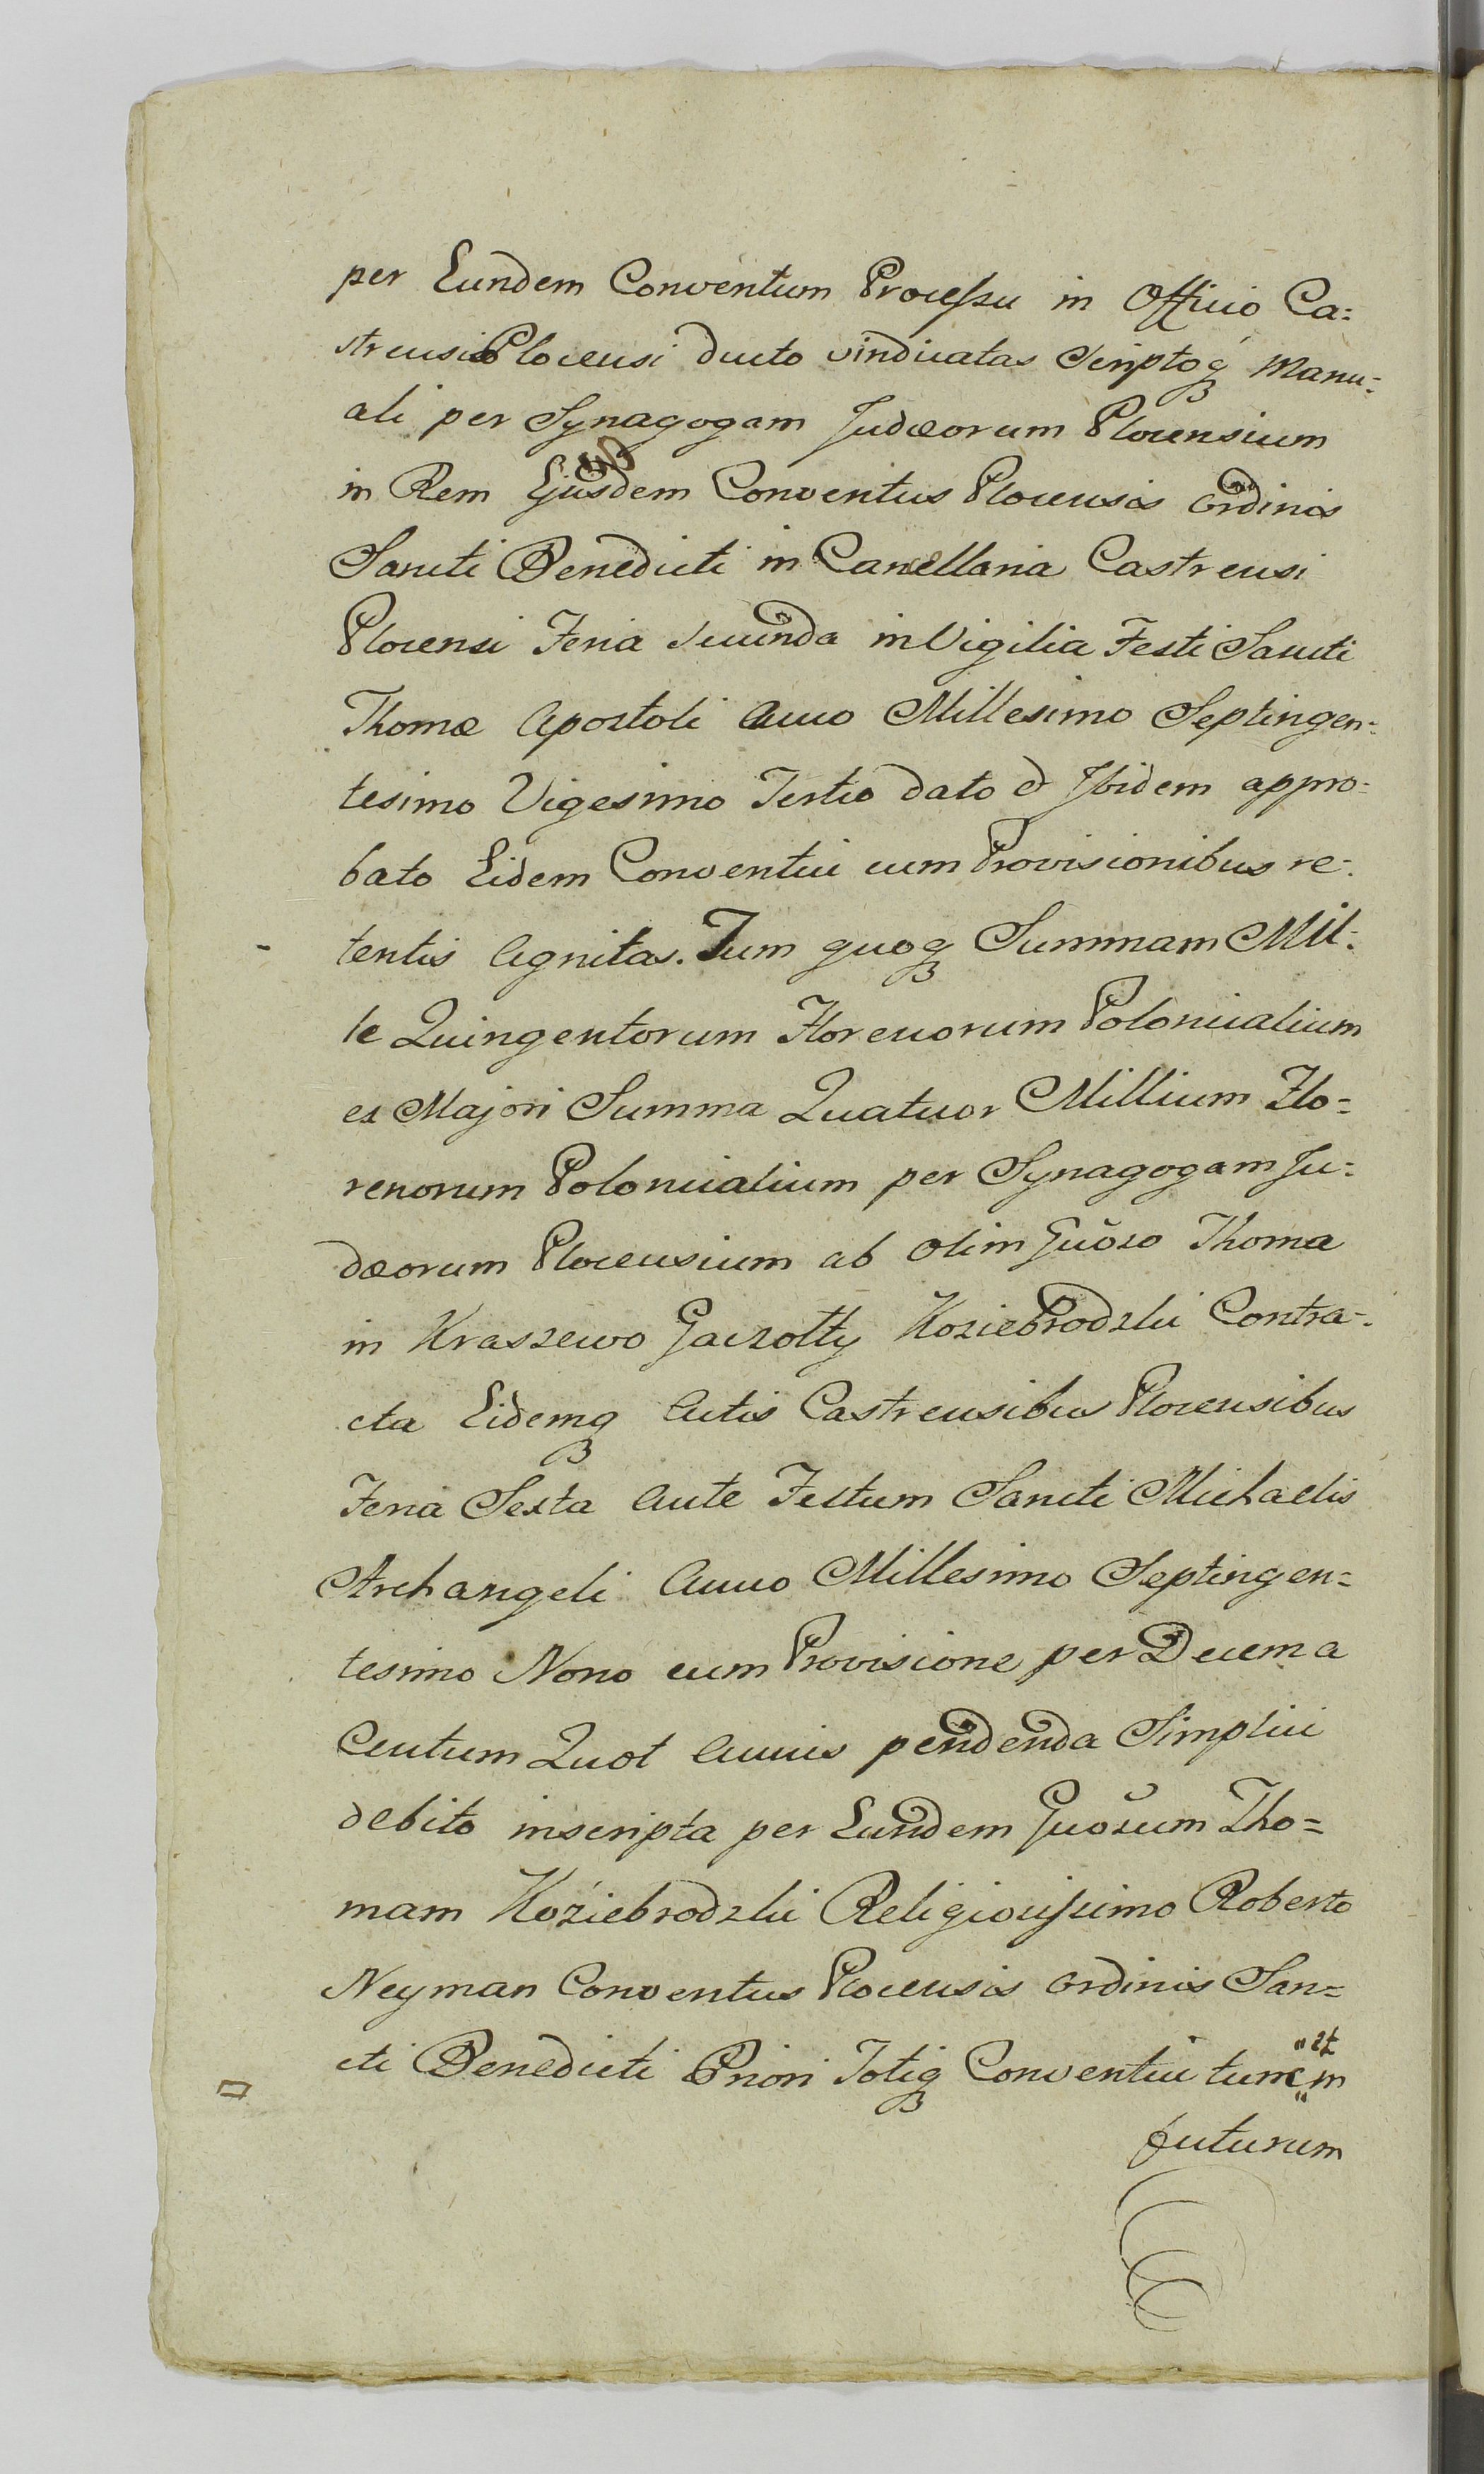 per Eundem Conventum Processu in Officio Ca=
strensi Plocensi ducto vindicatas Scriptoq3 Manu=
ali per Synagogam Judæorum Plocensium
in Rem Ejusdem Conventus Plocensis Ordinis
Sancti Benedicti in Cancellaria Castrensi
Plocensi Feria Secunda in Vigilia Festi Sancti
Thomæ Apostoli Anno Millesimo Septingen=
tesimo Vigesimo Tertio dato et Ibidem appro=
bato Eidem Conventui cum Provisionibus re=
tentis Agnitas. Tum quoq3 Summam Mil=
le Quingentorum Florenorum Polonicalium
ex Majori Summa Quatuor Millium Flo=
renorum Polonicalium per Synagogam Ju=
dæorum Plocensium ab olim Gn̄oso Thoma
in Kraszewo Gaczołty Koziebrodzki Contra=
cta Eidemq3 Actis Castrensibus Plocensibus
Feria Sexta Ante Festum Sancti Michaelis
Archangeli Anno Millesimo Septingen=
tesimo Nono cum Provisione per Decem a
Centum Quot Annis pendenda Simplici
debito inscripta per Eundem Gn̄osum Tho=
mam Koziebrodzki Religiosissimo Roberto
Neyman Conventus Plocensis Ordinis San=
cti Benedicti Priori Totiq3 Conventui tunc "et" in
futurum